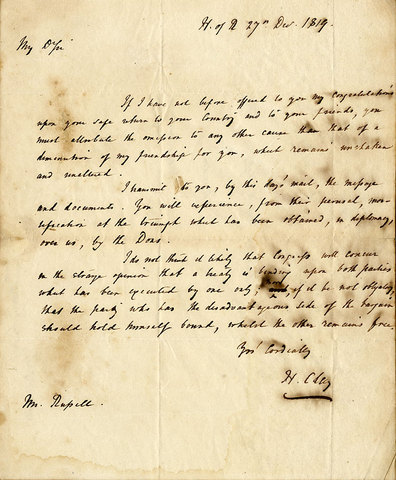 H. of R 27th Dec. 1819.
My Dr Sir
If I have not before offered to you my congratulations
upon your safe return to your Country and to your friends, you
must attribute the omission to any other cause than that of a
diminution of my friendship for you, which remains unshaken
and unaltered.
I transmit to you, by this day's mail, the message
and documents. You will experience, from their perusal, mor-
tification at the triumph which has been obtained, in diplomacy,
over us, by the Dons.
I do not think it likely that Congress will concur
in the strange opinion that a treaty is binding upon both parties
which has been executed by one only, or, if it be not obligatory,
that the party who has the disadvantageous side of the bargain
should hold himself bound, whilst the other remains free.
Yrs Cordially
H. Clay
Mr. Russell.